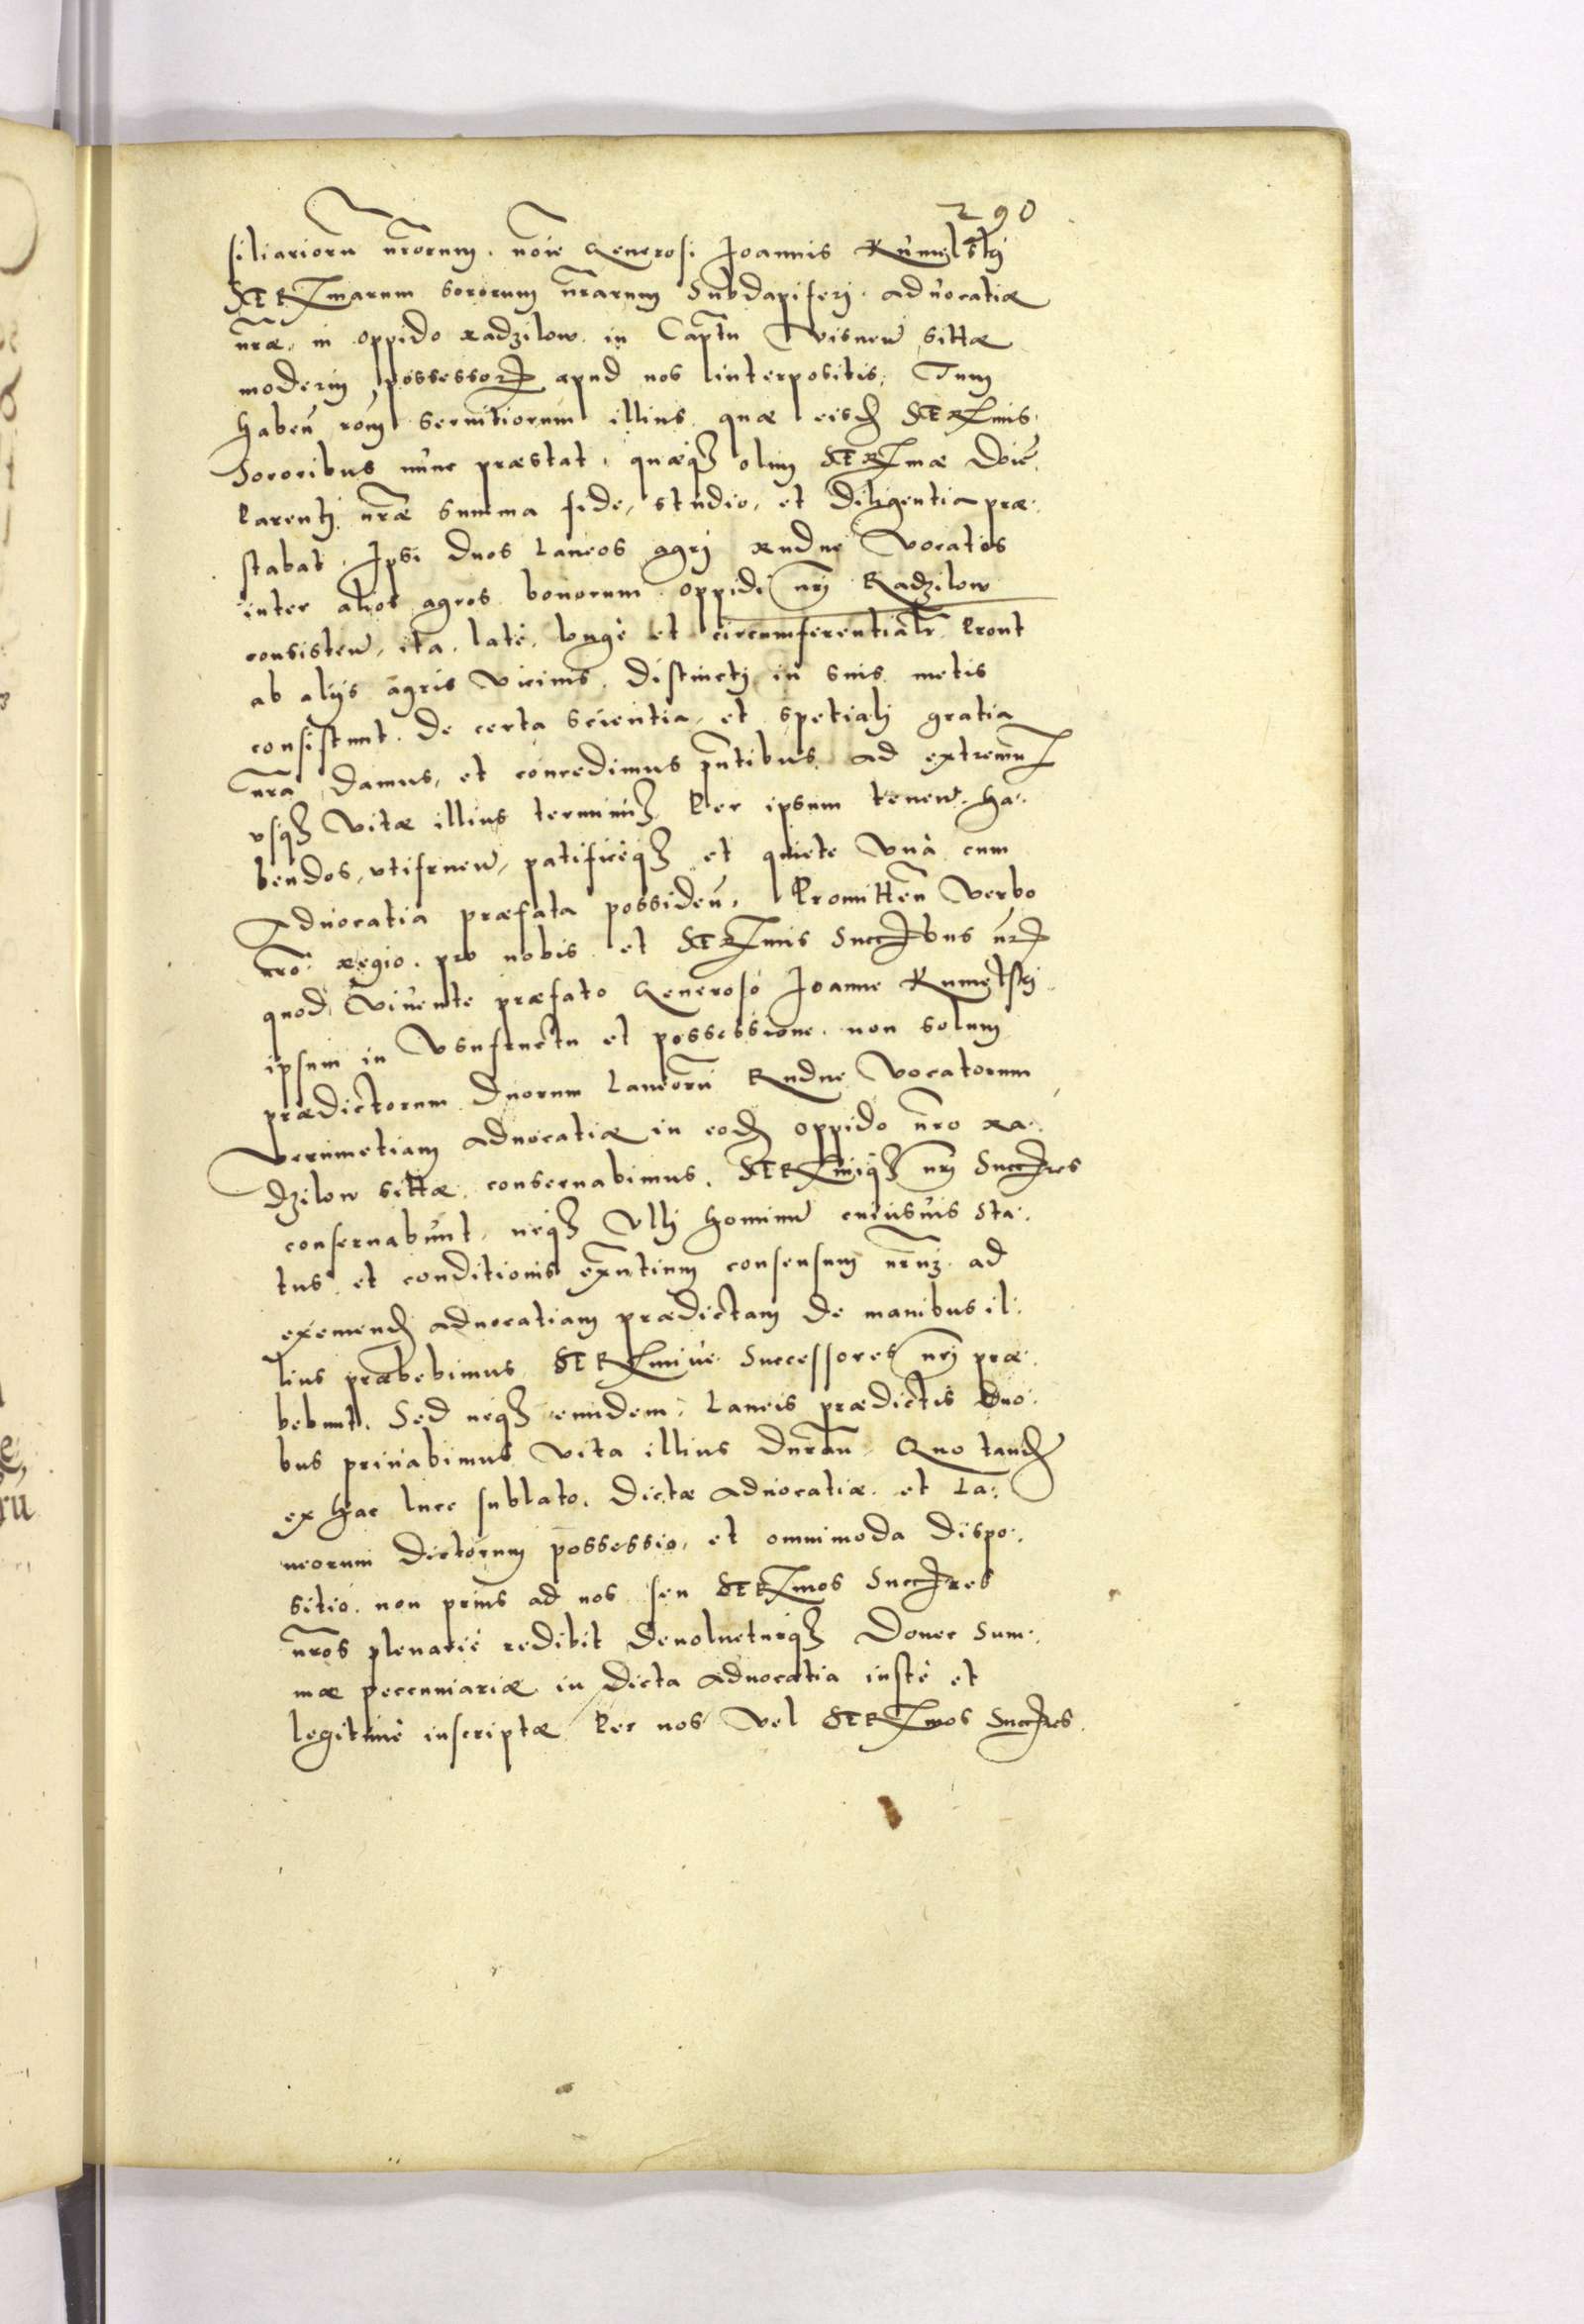 290
siliarioru nrorum. noie Generosi Joannis Rumelski
SERmarum sororum nrarum Subdapiferi. aduocatiæ
nræ. in oppido radzilow. in Captu Visnen sittæ
moderni possessor apud nos interpositis, Tum
haben rom seruitiorum illius. quæ eisd SERmis.
Sororibus nunc præstat, quæq olim SERmæ Doie
Parentj nræ summa fide, studio, et diligentia præ:
stabat. Ipsi duos Laneos agrj rudne Vocatos
inter alios agros bonorum oppidi nrj Radzilow
consisten, ita. latè. longè et circumferentialr Prout
ab alijs agris Vicinis. distinctj in suis metis
consistunt. De certa scientia, et spetialj gratia
nra Damus, et concedimus pntibus. ad extremu
vsq Vitæ illius terminu Per ipsum tenen. ha:
bendos, vtifruen, patificèq et quiete Vnà cum
Aduocatia præfata possiden. Promitten Verbo
nro regio. pro nobis. et SERmis Succbus nr
quod Viuente præfato Generoso Joanne Rumelskj
ipsum in Vsufructu et possessione. non solum
prædictorum duorum laneoru Rudne Vocatorum
Verumetiam aduocatiæ in eod oppido nro ra:
dzilow sittæ. conseruabimus. SERmiq nrj Succres
conseruabunt, neq Vllj hominu cuiusuis sta:
tus. et conditionis exntium consensum nrum ad
eximend aduocatiam prædictam de manibus il:
lius præbebimus SERmiue Successores nrj præ:
bebunt. Sed neq eundem, Laneis prædictis Duo:
bus priuabimus Vita illius duran. Quo tand
ex hac luce sublato. dictæ aduocatiæ. et La:
neorum dictorum possessio, et omnimoda dispo:
sitio. non prius ad nos seu SERmos Succres
nros plenariè redibit Deuolueturq Donec Sum:
mæ peccuniariæ in dicta aduocatia iustè et
legitimè inscriptæ Per nos Vel SERmos Succres.